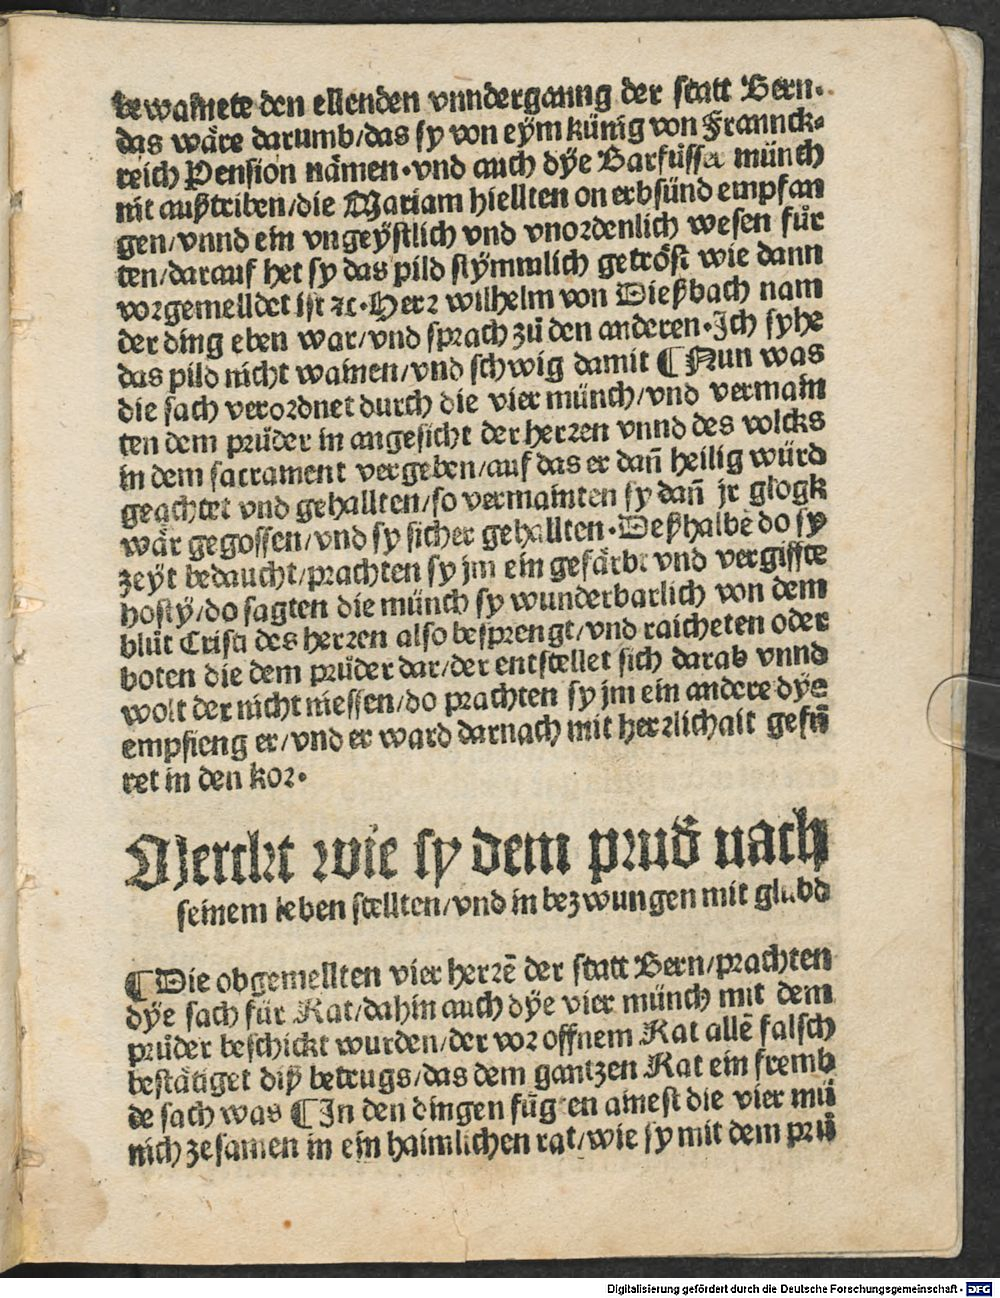 bewainete den ellenden vnnderganng der statt Bern.
das wäre darumb/das sy von eym künig von Frannck⸗
reich Pension nämen.vnd auch dÿe Barfüsser münch
nit außtriben/die Mariam hiellten on erbsünd empfan
gen/vnnd ein vngeÿstlich vnd vnordenlich wesen fůr
ten/darauf het sy das pild stÿmmlich getröst wie dann
vorgemelldet ist ꝛc.Herr wilhelm von Dießbach nam
der ding eben war/vnd sprach zů den anderen.Ich syhe
das pild nicht wainen/vnd schwig damit ¶ Nun was
die sach verordnet durch die vier münch/vnd vermain
ten dem průder in angesicht der herren vnnd des volcks
in dem sacrament vergeben/auf das er dañ heilig würd
geachtet vnd gehallten/so vermainten sy dañ jr glogk
wär gegossen/vnd sy sicher gehallten.Deßhalbē do sy
zeÿt bedaucht/prachten sy jm ein gefärbt vnd vergiffte
hostÿ/do sagten die münch sy wunderbarlich von dem
blůt Cristi des herren also besprengt/vnd raicheten oder
boten die dem průder dar/der entstellet sich darab vnnd
wolt der nicht niessen/do prachten sy jm ein andere dÿe
empfieng er/vnd er ward darnach mit herrlichait gefü
ret in den kor.
Merckt wie sy dem prud̄ nach
seinem leben stellten/vnd in bezwungen mit glubd
¶ Die obgemellten vier herrē der statt Bern/prachten
dÿe sach für Rat/dahin auch dÿe vier münch mit dem
průder beschickt wurden/der vor offnem Rat allē falsch
bestätiget diß betrugs/das dem gantzen Rat ein fremb
de sach was ¶ In den dingen fůgten ainest die vier mü
nich zesamen in ein haimlichen rat/wie sy mit dem prů
Digitalisierung gefördert durch die Deutsche Forschungsgemeinschaft - DFG